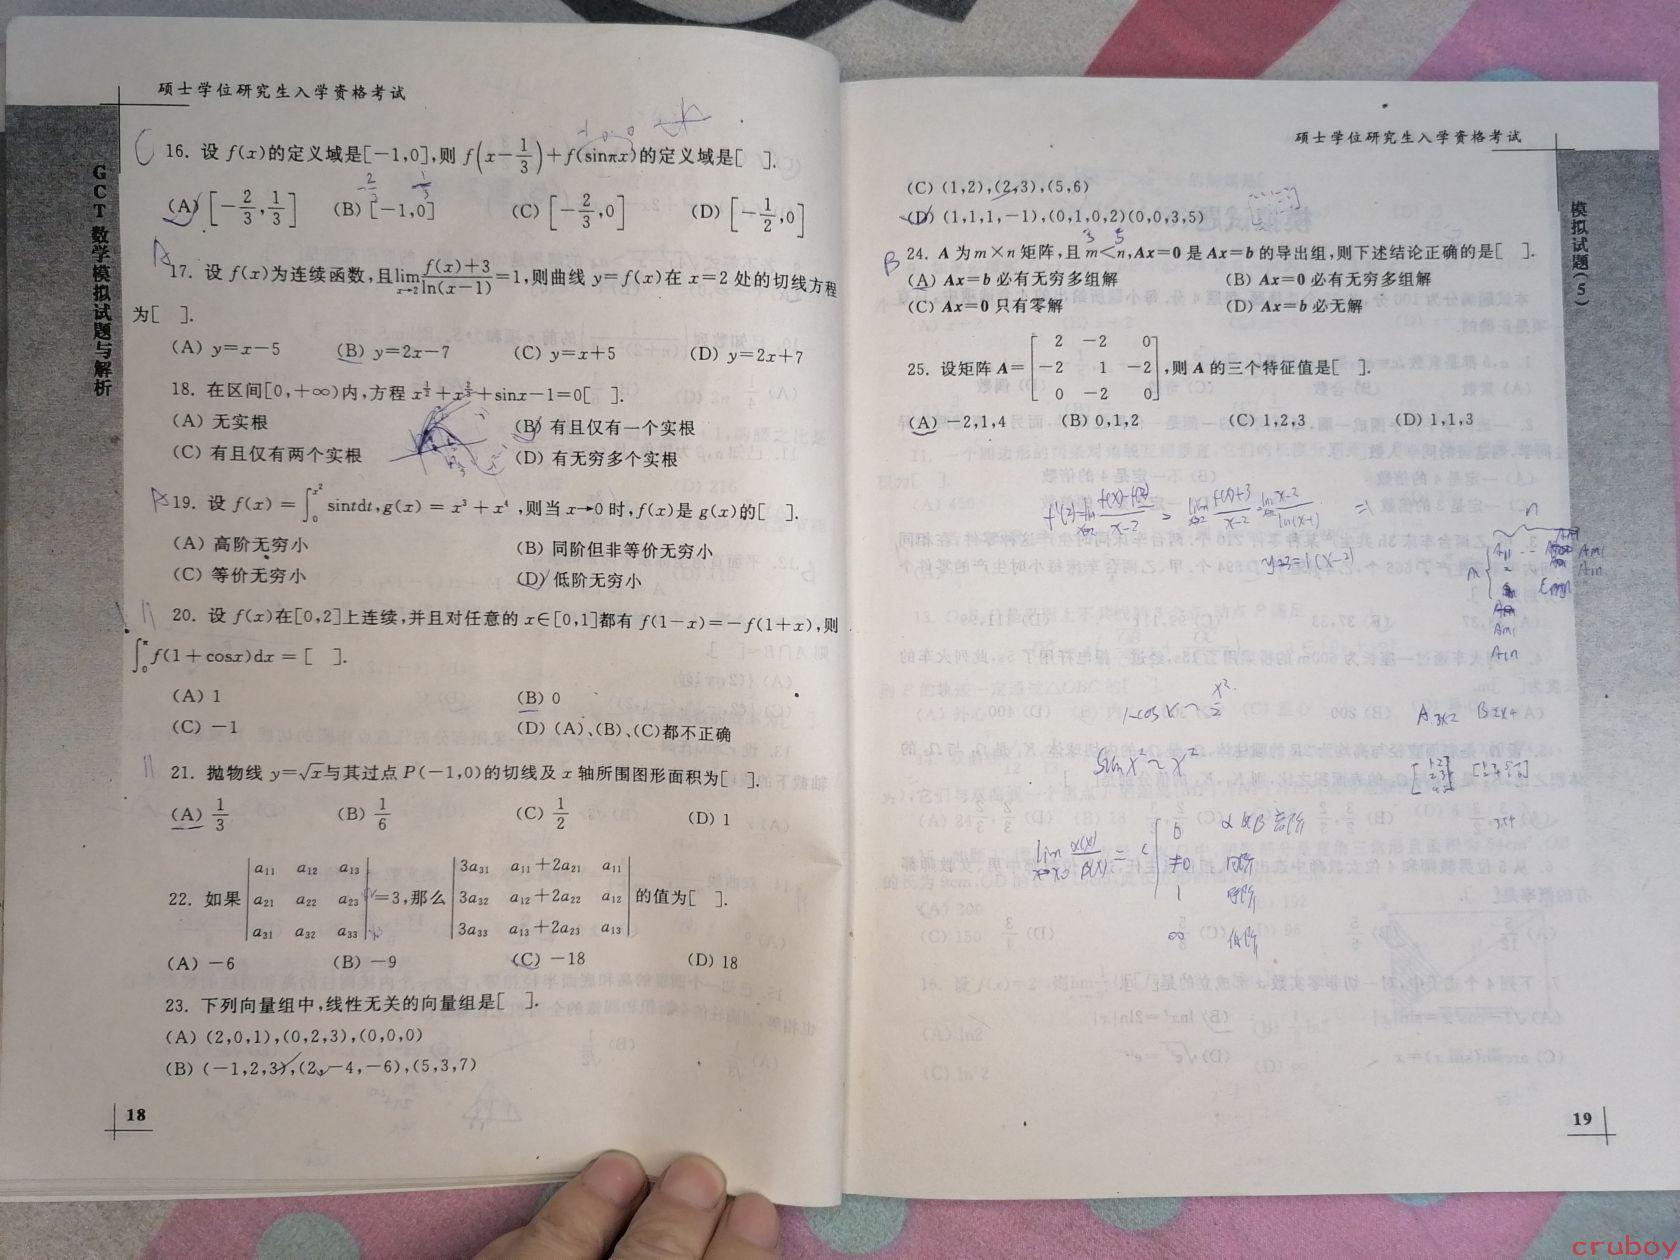 硕士学位研究生入学资格考试
GCT数学模拟试题与解析
C
16. 设 f(x)的定义域是[−1,0],则 f(x−1/3)+f(sinπx)的定义域是[  ].
(A) [−2/3,1/3] (B) [−1,0] (C) [−2/3,0] (D) [−1/2,0]
A
17. 设 f(x)为连续函数,且lim x→2 (f(x)+3)/ln(x−1)=1,则曲线 y=f(x)在 x=2 处的切线方程
为[  ].
(A) y=x−5 (B) y=2x−7 (C) y=x+5 (D) y=2x+7
18. 在区间[0,+∞)内,方程 x^{1/2}+x^{2/3}+sinx−1=0[  ].
(A) 无实根 (B) 有且仅有一个实根
(C) 有且仅有两个实根 (D) 有无穷多个实根
A
19. 设 f(x) = ∫₀^{x²} sintdt,g(x) = x³ + x⁴ ,则当 x→0 时,f(x)是 g(x)的[  ].
(A) 高阶无穷小 (B) 同阶但非等价无穷小
(C) 等价无穷小 (D) 低阶无穷小
20. 设 f(x)在[0,2]上连续,并且对任意的 x∈[0,1]都有 f(1−x)=−f(1+x),则
∫₀^π f(1+cosx)dx = [  ].
(A) 1 (B) 0
(C) −1 (D) (A)、(B)、(C)都不正确
21. 抛物线 y=√x与其过点 P(−1,0)的切线及 x 轴所围图形面积为[  ].
(A) 1/3 (B) 1/6 (C) 1/2 (D) 1
22. 如果 | a₁₁ a₁₂ a₁₃ ; a₂₁ a₂₂ a₂₃ ; a₃₁ a₃₂ a₃₃ | =3,那么 | 3a₃₁ a₁₁+2a₂₁ a₁₁ ; 3a₃₂ a₁₂+2a₂₂ a₁₂ ; 3a₃₃ a₁₃+2a₂₃ a₁₃ | 的值为[  ].
(A) −6 (B) −9 (C) −18 (D) 18
23. 下列向量组中,线性无关的向量组是[  ].
(A) (2,0,1),(0,2,3),(0,0,0)
(B) (−1,2,3),(2,−4,−6),(5,3,7)
18
硕士学位研究生入学资格考试
模拟试题(5)
(C) (1,2),(2,3),(5,6)
(D) (1,1,1,−1),(0,1,0,2)(0,0,3,5)
B
24. A 为 m×n 矩阵,且 m<n,Ax=0 是 Ax=b 的导出组,则下述结论正确的是[  ].
(A) Ax=b 必有无穷多组解 (B) Ax=0 必有无穷多组解
(C) Ax=0 只有零解 (D) Ax=b 必无解
25. 设矩阵 A= [ 2 −2 0 ; −2 1 −2 ; 0 −2 0 ] ,则 A 的三个特征值是[  ].
(A) −2,1,4 (B) 0,1,2 (C) 1,2,3 (D) 1,1,3
y+3=1(x−2)
1−cosx ~ x²/2
sinx² ~ x²
lim α(x)/β(x) =
0 α是β高阶
≠0 同阶
1
∞ 低阶
19
cruboy